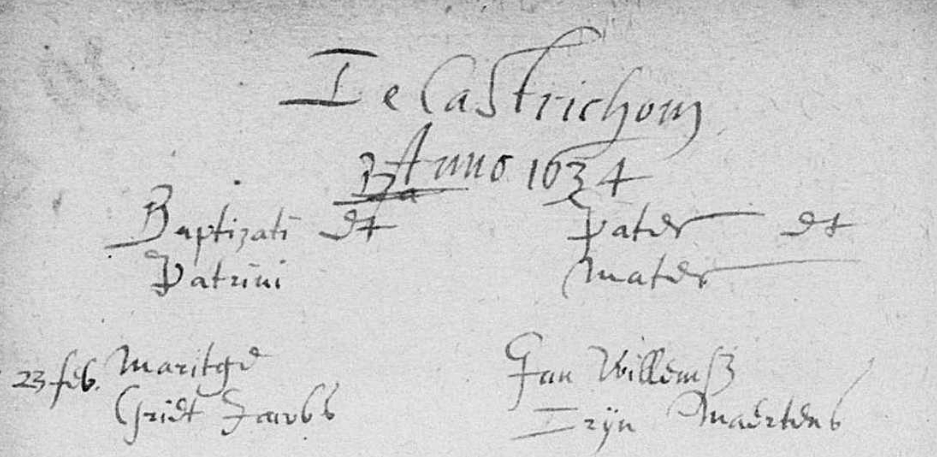 Te Castrichom
Anno 1634
Baptizati et Pater et
Patrini Mater
23 feb. Maritge Jan Willemsz
Griet Jacobs Trijn Maertens